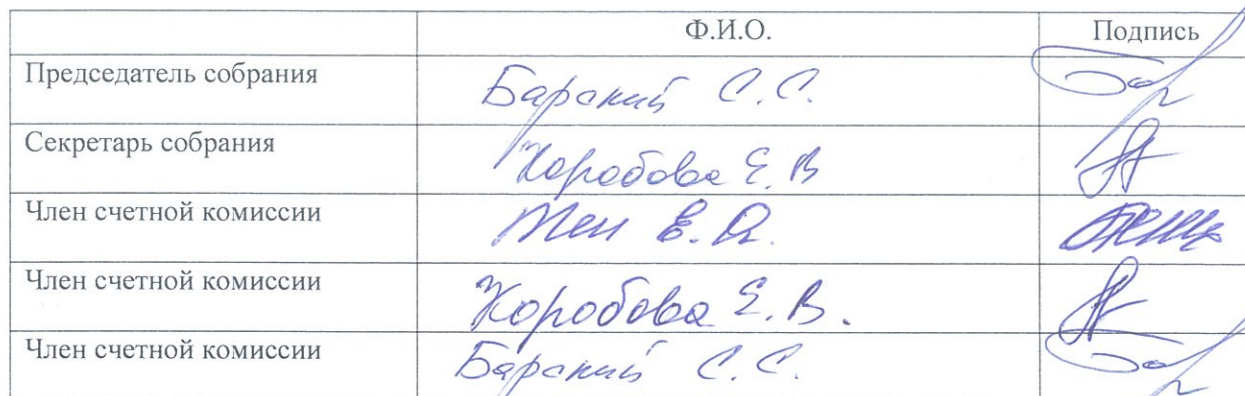 Ф.И.О. Подпись
Председатель собрания Барский С.С.
Секретарь собрания Коробова Е.В
Член счетной комиссии Тен Е.
Член счетной комиссии Коробова Е.В.
Член счетной комиссии Барский С.С.